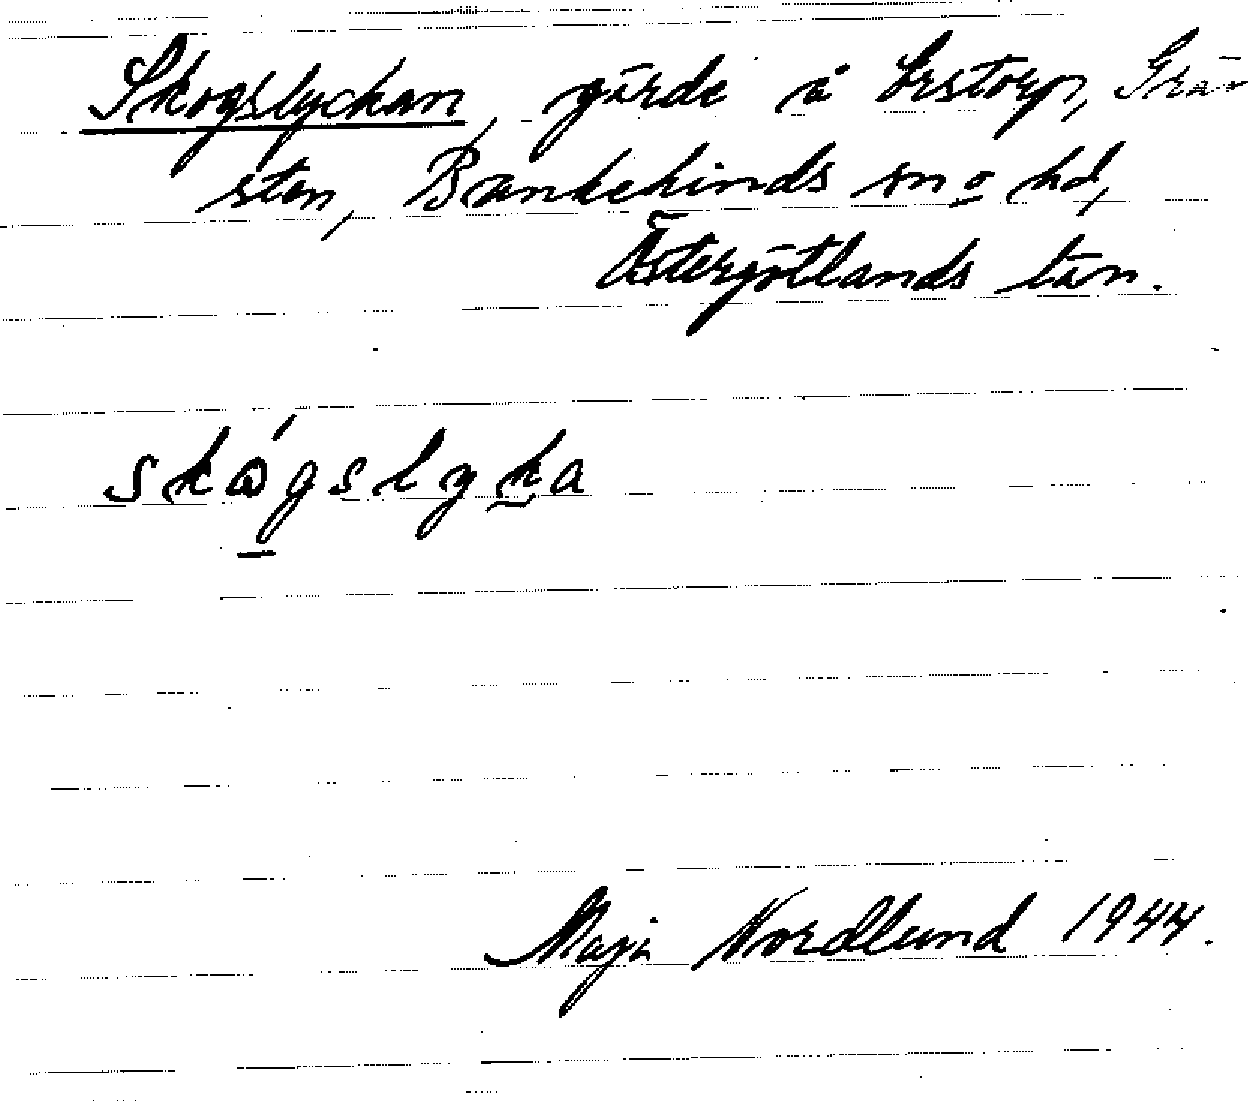 Skogslyckan, gärde å Erstorp, Grän-
sten, Bankekinds sn o hd,
Östergötlands län.
skógslyka
Maja Nordlund 1944.